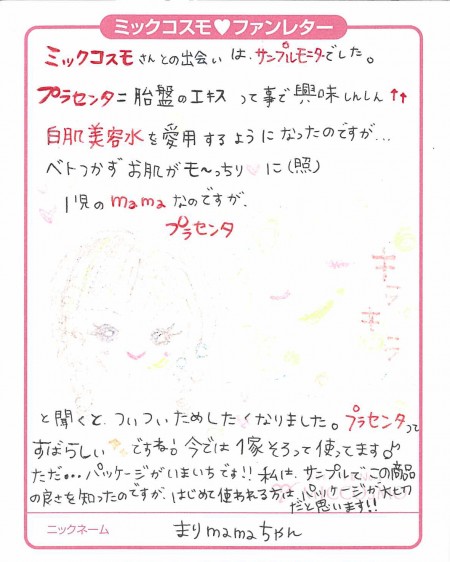 ミックコスモ♥ファンレター
ミックコスモさんとの出会いは、サンプルモニターでした。
プラセンタ=胎盤のエキスって事で興味しんしん↑↑
白肌美容水を愛用するようになったのですが…
ベトつかずお肌がモ〜っちり♡に(照)
1児のmamaなのですが、
プラセンタ
キラキラ
と聞くと、ついついためしたくなりました。プラセンタって
すばらしいですね!今では1家そろって使ってます♪
ただ…パッケージがいまいちです!!私は、サンプルでこの商品
の良さを知ったのですが、はじめて使われる方は、パッケージが大切
だと思います!!
ニックネーム まりmamaちゃん